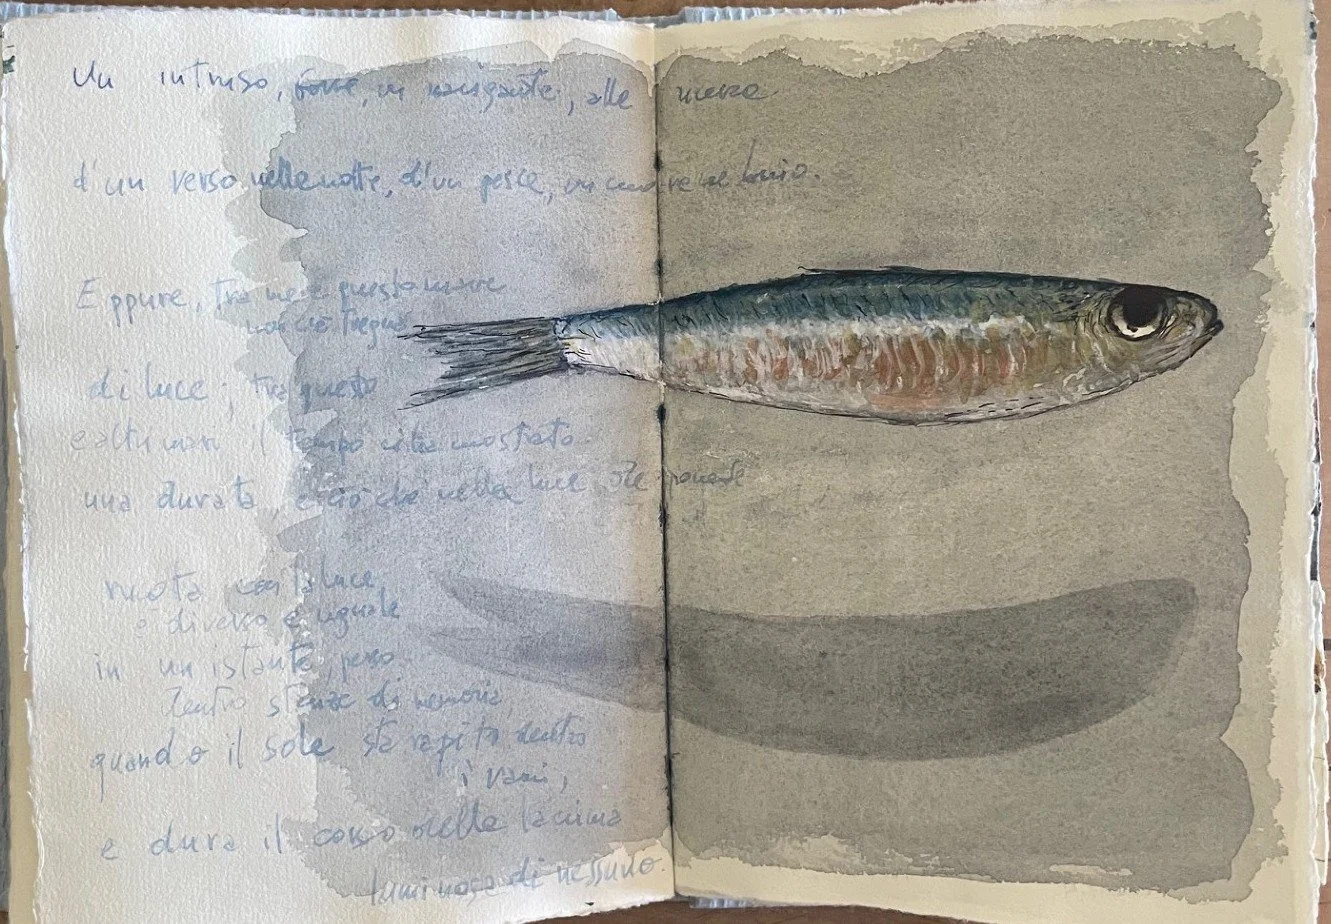 Un intruso, forse, un navigante, alle mura
d'un verso nella notte, d'un pesce, un cuore nel buio.
Eppure, tra me e questo mare
non c'è tregua
di luce; tra questo
e altri mari il tempo ci ha mostrato
una durata, e ciò che nella luce
ruota con la luce,
è diverso è uguale
in un istante, perso
dentro stanze di memoria,
quando il sole sta rapito dentro
i rami,
e dura il corso della lacrima
luminosa di nessuno.